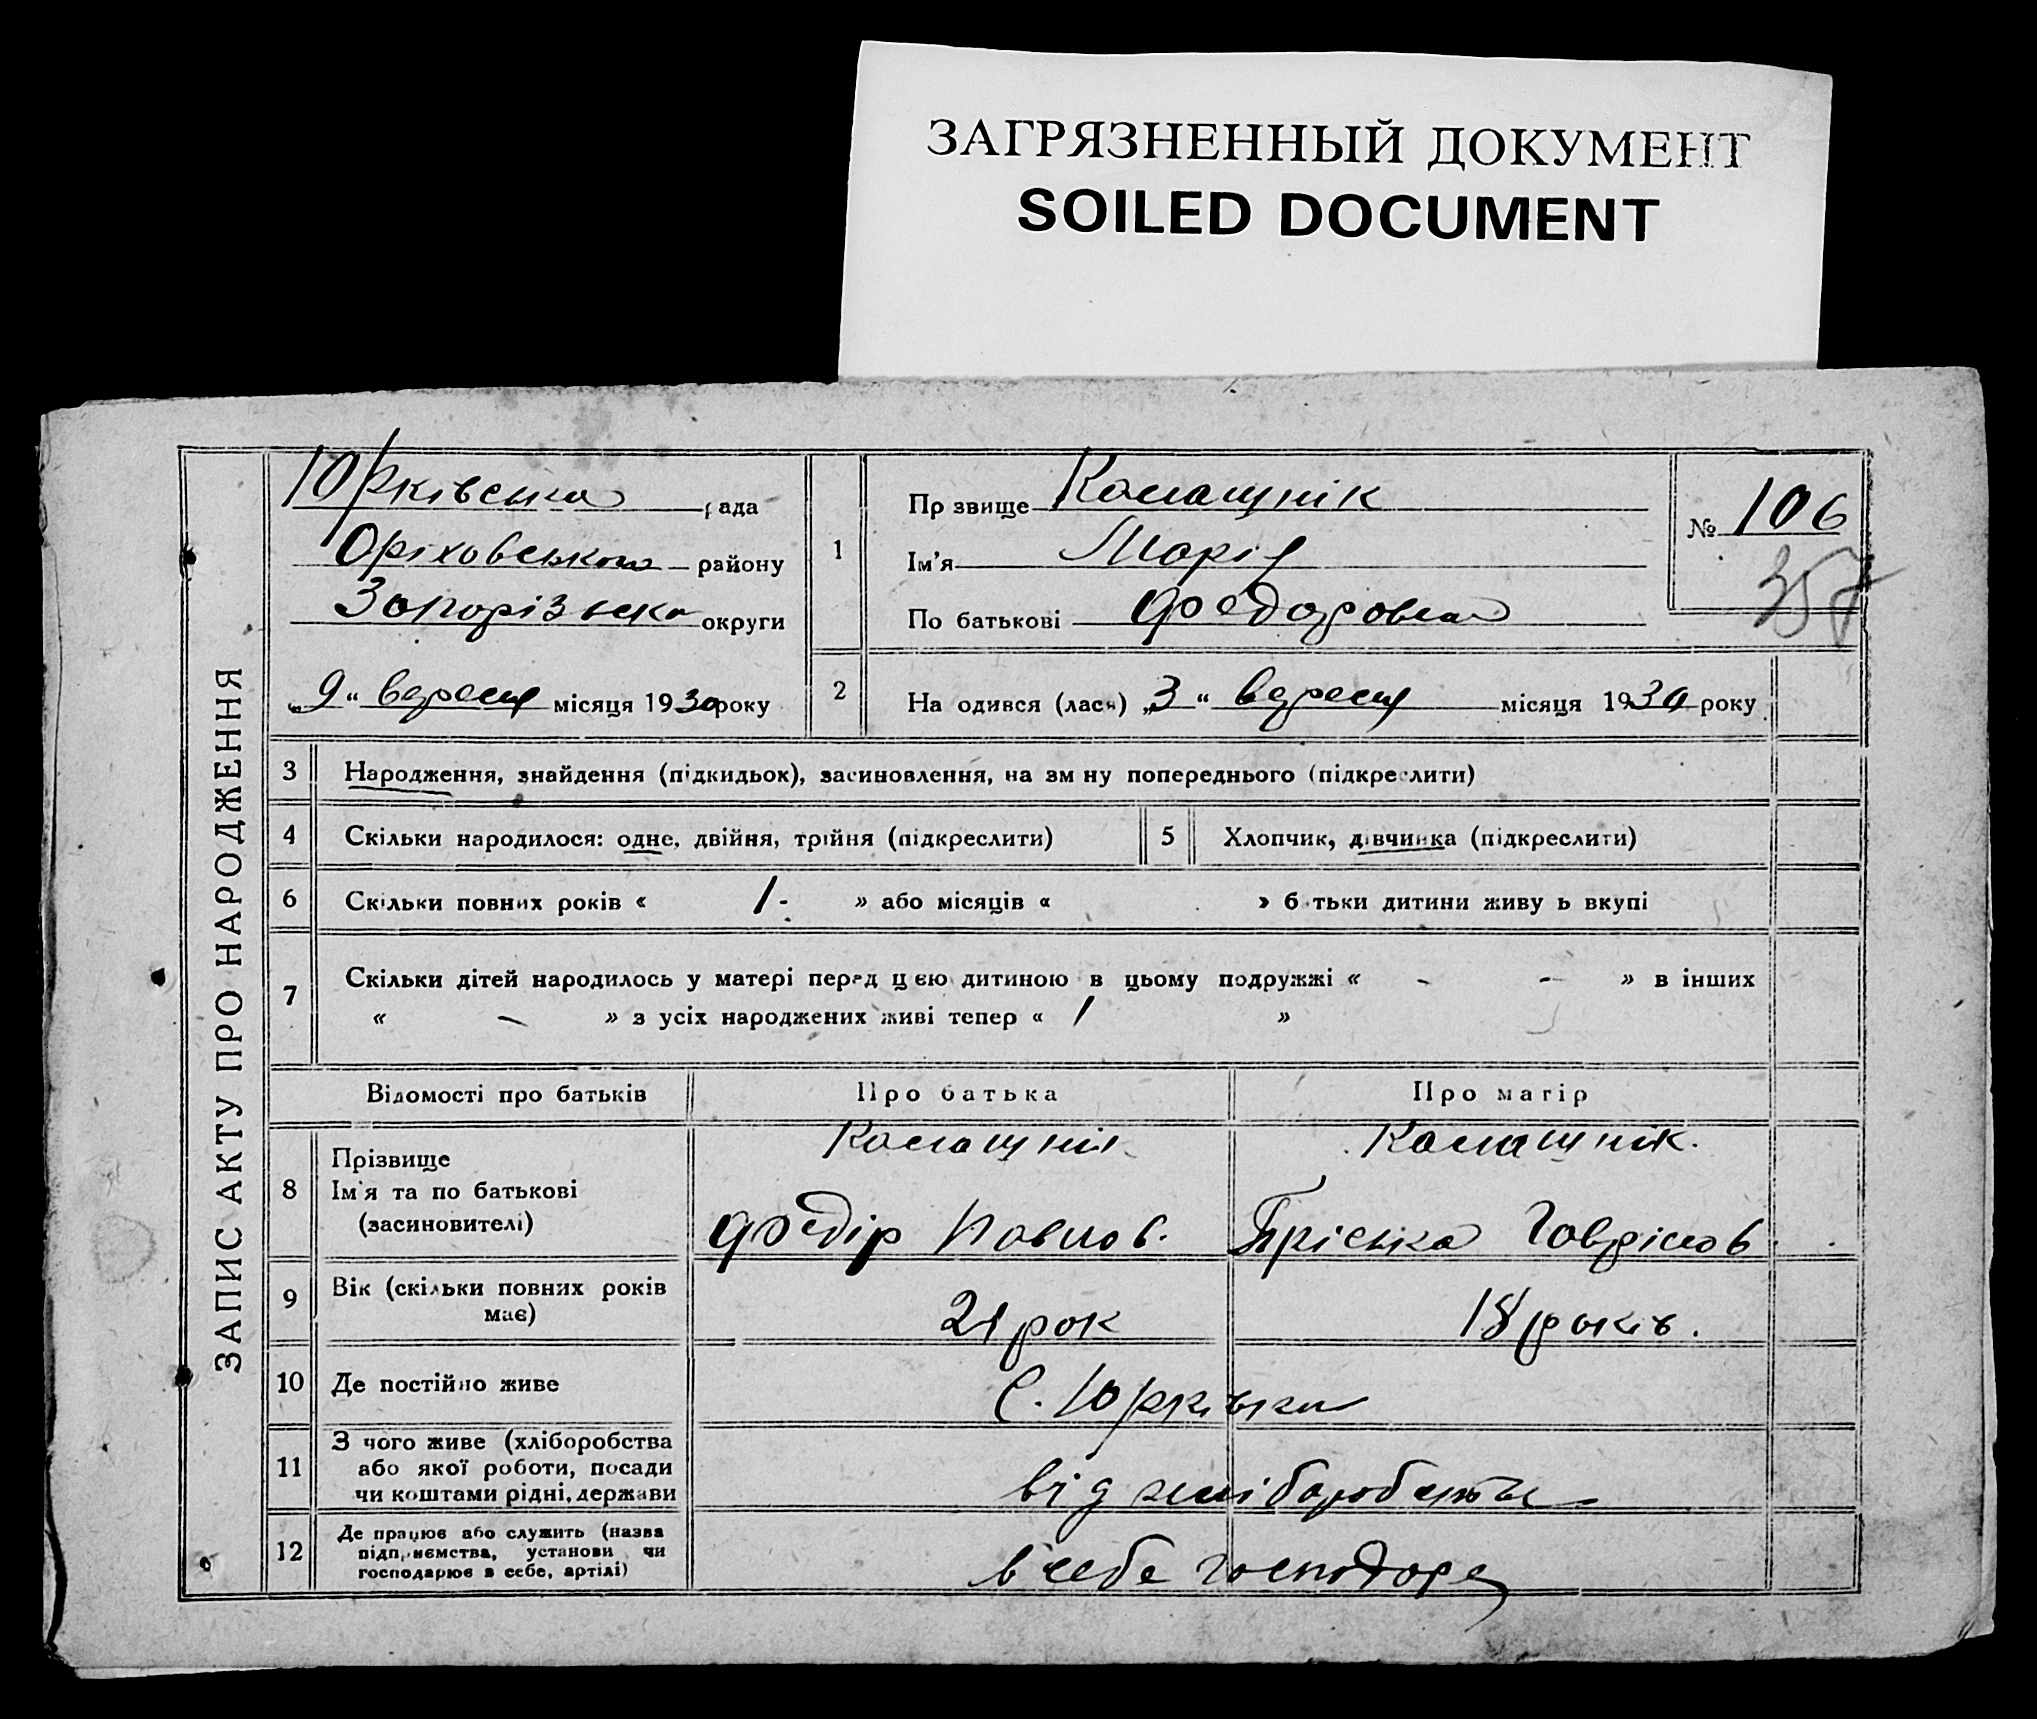 ЗАГРЯЗНЕННЫЙ ДОКУМЕНТ
SOILED DOCUMENT
ЗАПИС АКТУ ПРО НАРОДЖЕННЯ
Юрківська рада
Оріховського району
Запорізька округи
„9“ вересня місяця 1930 року
1
Прзвище Камащнік
Ім'я Марія
По батькові Федоровна
№ 106
357
2
Наодився (лася) „3“ вересня місяця 1930 року
3 Народження, знайдення (підкидьок), засиновлення, на змну попереднього (підкреслити)
4 Скільки народилося: одне, двійня, трійня (підкреслити)
5 Хлопчик, дівчинка (підкреслити)
6 Скільки повних років « 1 - » або місяців « » бтьки дитини живуь вкупі
7 Скільки дітей народилось у матері перед цею дитиною в цьому подружжі « - - » в інших
« - » з усіх народжених живі тепер « 1 »
Відомості про батьків Про батька Про матір
8 Прізвище
Ім'я та по батькові
(засиновителі)
Камащнік
Федір Павлов.
Камащнік.
Пріська Гаврілов.
9 Вік (скільки повних років
має)
21 рок
18 років.
10 Де постійно живе
С. Юрківка
11 З чого живе (хліборобства
або якої роботи, посади
чи коштами рідні, держави
від хліборобства
12 Де працює або служить (назва
підприємства, установи чи
господарює в себе, артілі)
в себе господарє